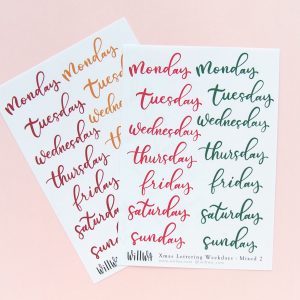 Monday Monday
Tuesday Tuesday
Wednesday Wednesday
thursday thursday
friday friday
saturday saturday
sunday sunday
Xmas Lettering Weekdays - Mixed 2
Monday Monday
Tuesday
Wednesday
thursday
friday
saturday
sunday